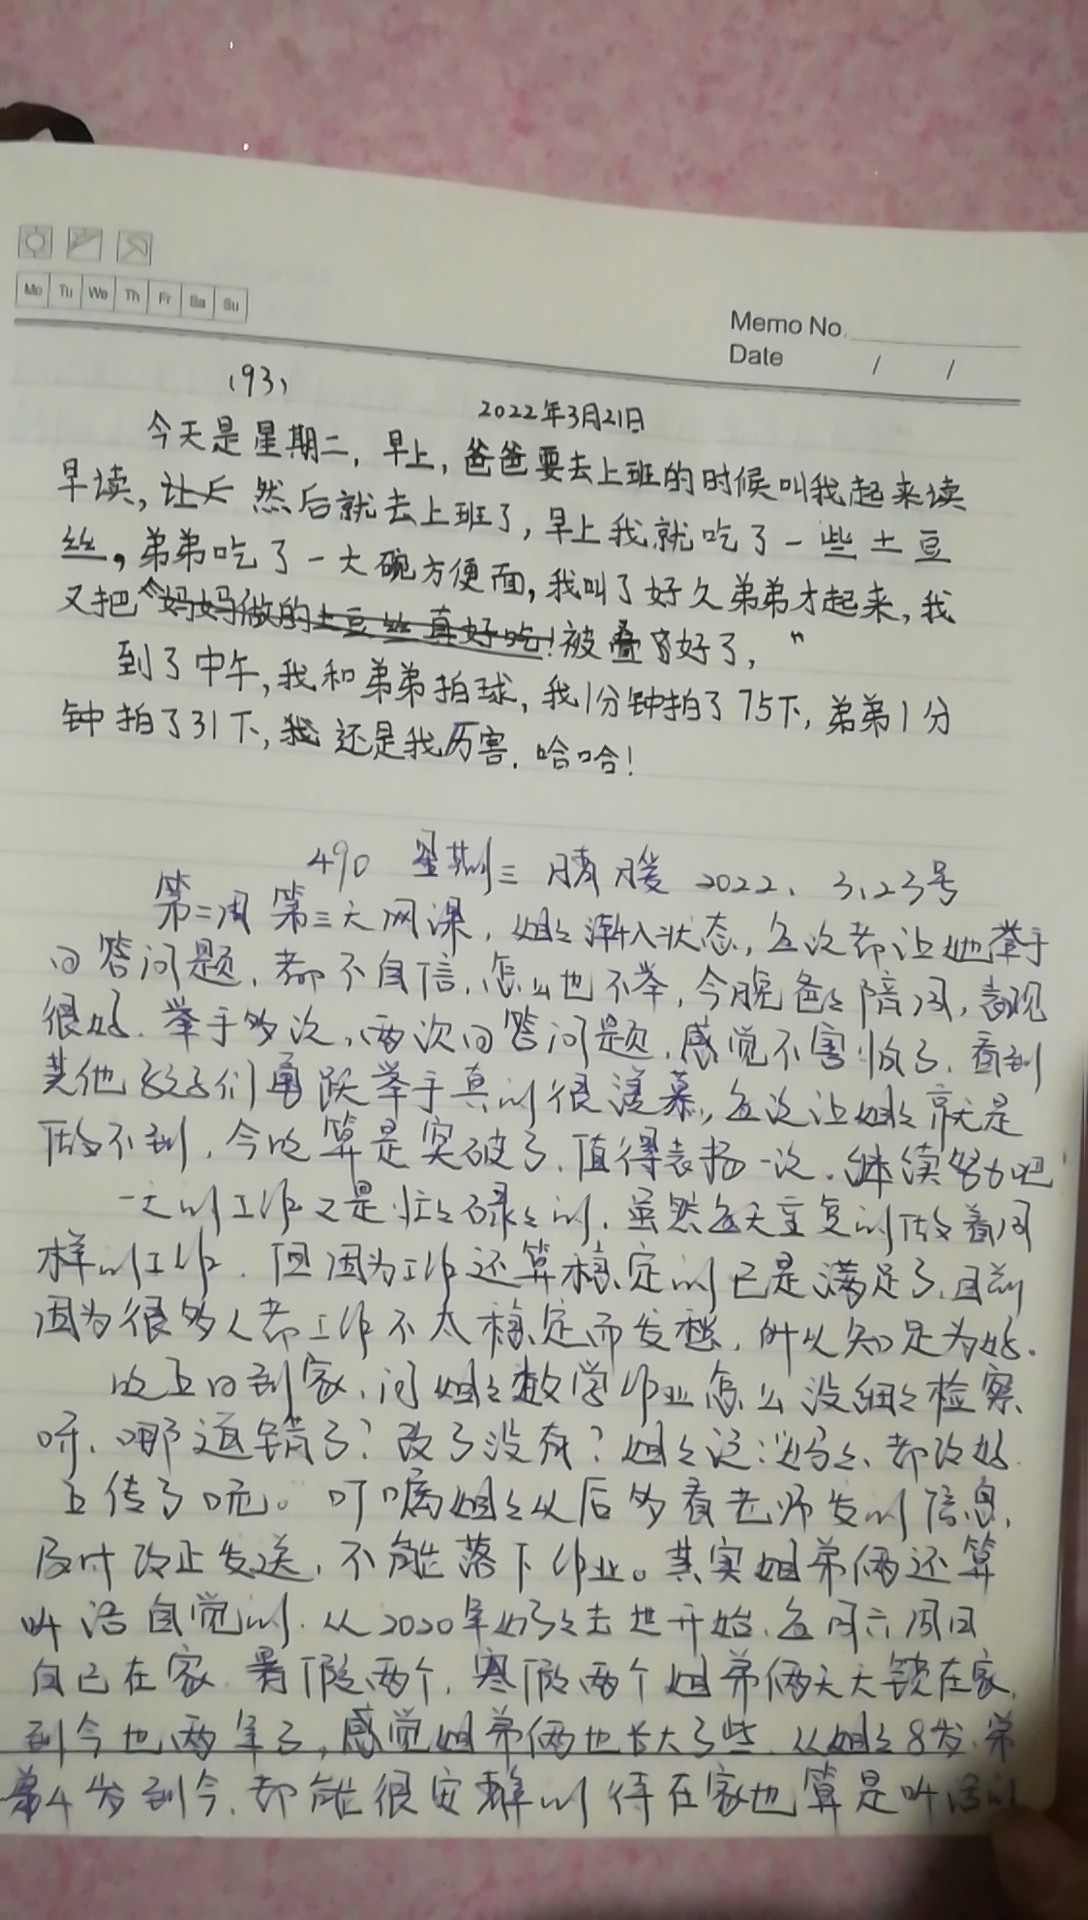 Mo Tu We Th Fr Sa Su
Memo No.
Date / /
(93)
2022年3月21日
今天是星期二，早上，爸爸要去上班的时候叫我起来读
早读，让 然后就去上班了，早上我就吃了一些土豆
丝。弟弟吃了一大碗方便面，我叫了好久弟弟才起来，我
又把“妈妈做的土豆丝真好吃！被叠好了，”
到了中午，我和弟弟拍球，我1分钟拍了75下，弟弟1分
钟拍了31下，我还是我厉害，哈哈！
490 星期三 晴暖 2022、3.23号
第二周第三天网课，姐姐渐入状态，每次都让她举手
回答问题，都不自信，怎么也不举，今晚爸爸陪同，表现
很好．举手多次，两次回答问题，感觉不害怕了．看到
其他孩子们勇跃举手真的很羡慕，每次让姐姐就是
做不到，今晚算是突破了．值得表扬一次．继续努力吧
一天的工作又是忙忙碌碌的．虽然每天重复的做着同
样的工作．但因为工作还算稳定的已是满足了．目前
因为很多人都工作不太稳定而发愁，所以知足为好．
晚上回到家，问姐姐数学作业怎么没细细检察
呀、哪道错了？改了没有？姐姐说：妈妈、都改好
上传了呢。叮嘱姐姐以后多看老师发的信息，
及时改正发送，不能落下作业。其实姐弟俩还算
听话自觉的．从2020年奶奶去世开始．每周六周日
自己在家．暑假两个，寒假两个姐弟俩天天锁在家，
到今也两年了，感觉姐弟俩也长大了些．从姐姐8岁．弟
弟4岁到今．都能很安静的待在家也算是听话的